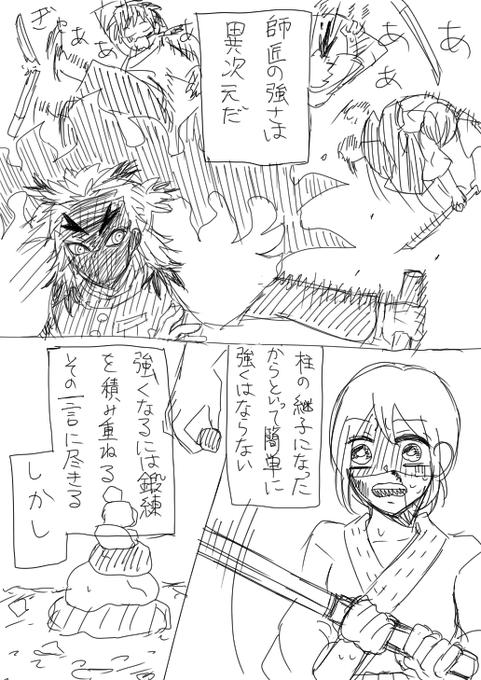 師匠の強さは
異次元だ
あ
あ
あ
あ
ぁ
ぎゃ
柱の継子になった
からといって簡単に
強くはならない
強くなるには鍛練
を積み重ねる
その一言に尽きる
しかし